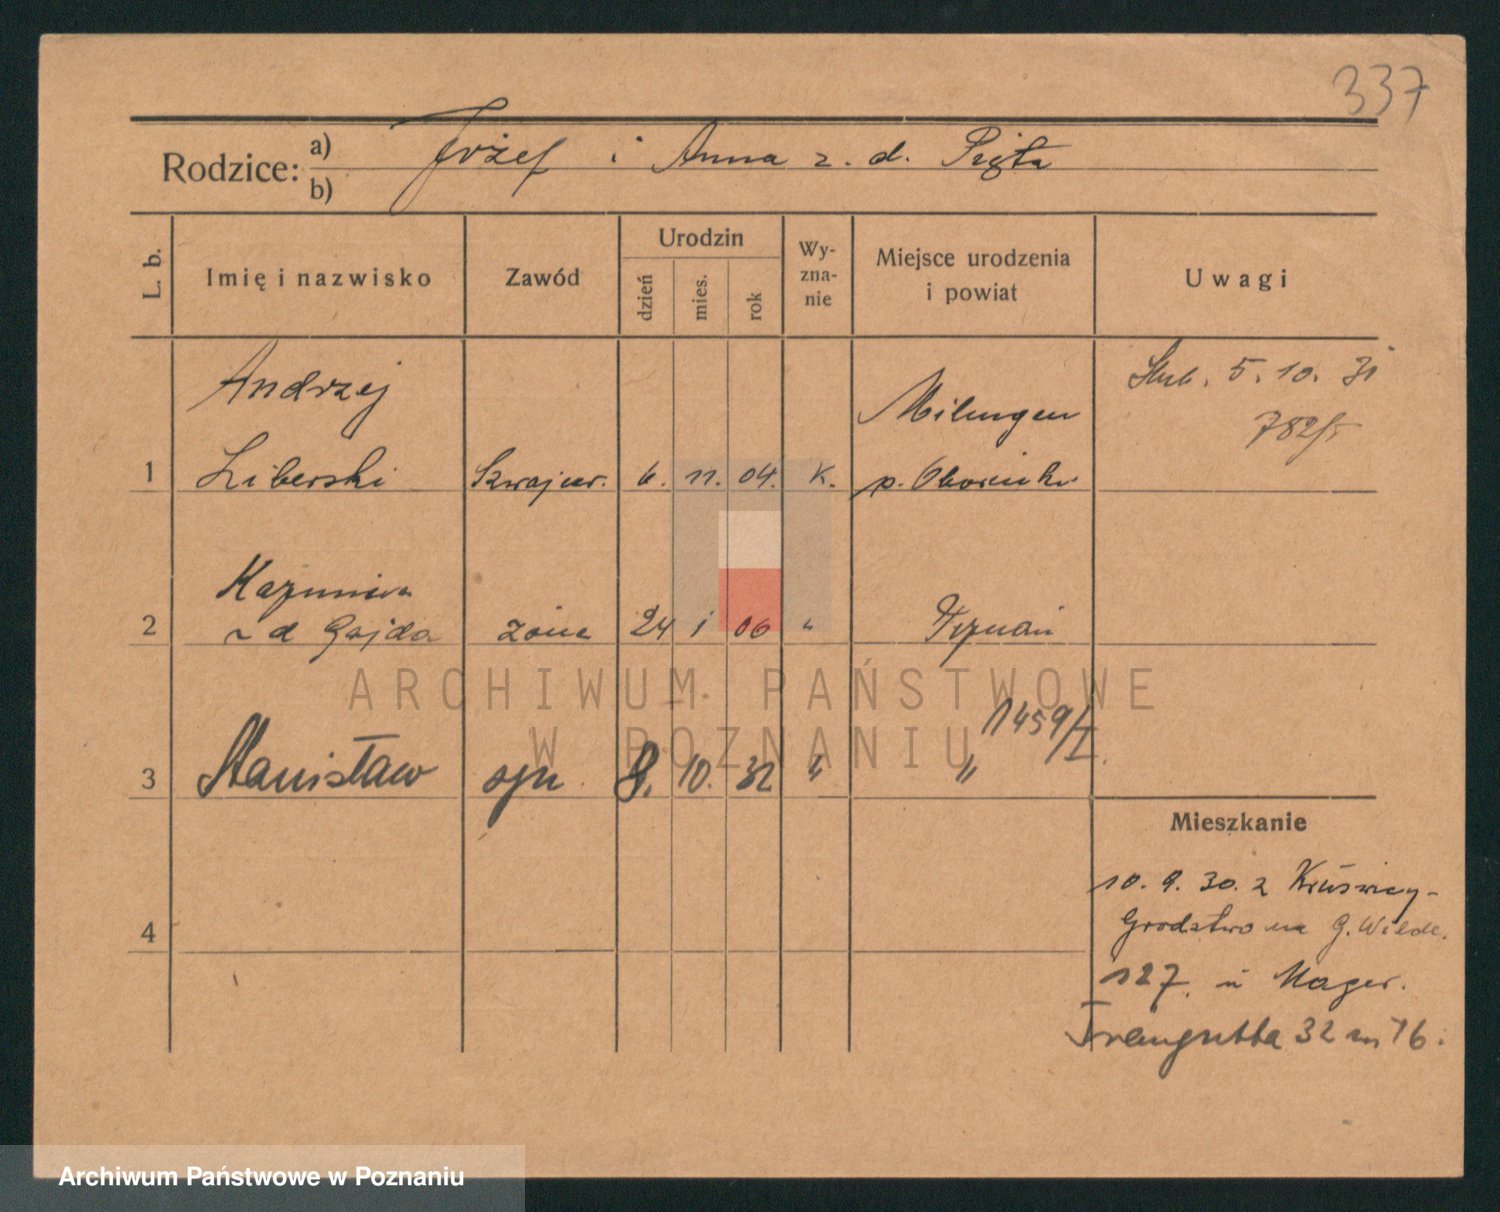 337
Rodzice: a) Józef i Anna z. d. Pięta
b)
L. b.
Imię i nazwisko
Zawód
Urodzin
dzień
mies.
rok
Wy-
zna-
nie
Miejsce urodzenia
i powiat
Uwagi
Andrzej
Ślub. 5. 10. 31
1 Liberski 6. 11. 04. K. p. Oborniki
2 z d Gajda żona 24 i 06 " Poznań
ARCHIWUM PAŃSTWOWE
W POZNANIU
1459/I.
3 Stanisław syn 8. 10. 32 " "
Mieszkanie
10. 9. 30. z Kruświcy-
4
Grodztwo na G. Wilde.
127. u Mager.
Traugutta 32 m 16.
Archiwum Państwowe w Poznaniu